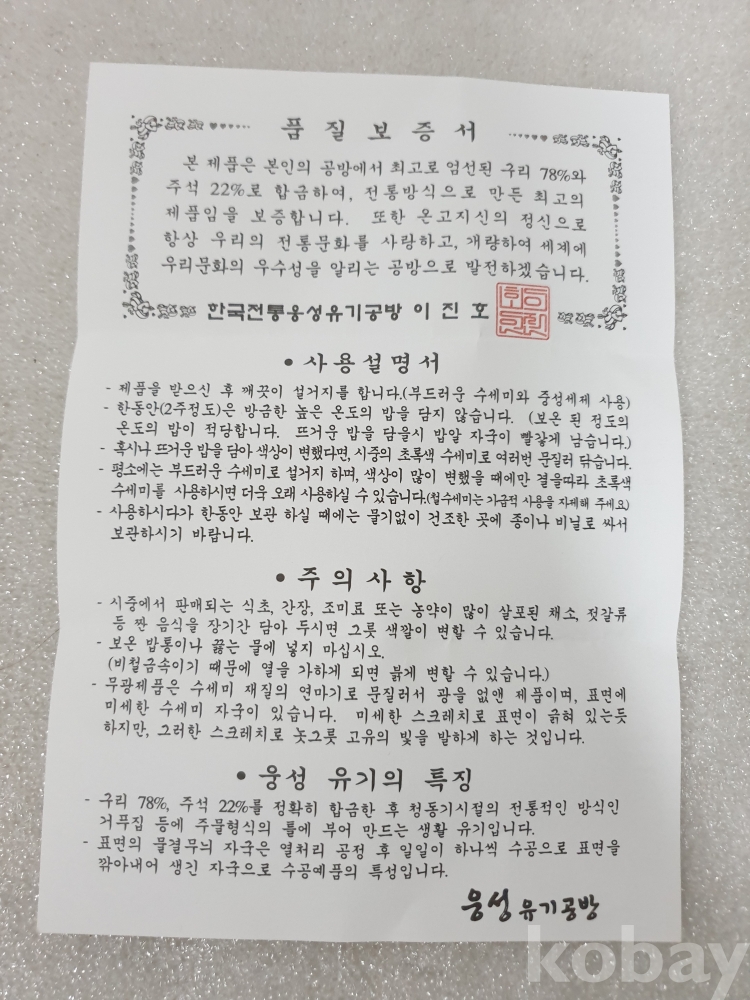 품질보증서
본 제품은 본인의 공방에서 최고로 엄선된 구리 78%와
주석 22%로 합금하여, 전통방식으로 만든 최고의
제품임을 보증합니다. 또한 온고지신의 정신으로
항상 우리의 전통문화를 사랑하고, 개량하여 세계에
우리문화의 우수성을 알리는 공방으로 발전하겠습니다.
한국전통웅성유기공방 이 진 호
• 사용설명서
- 제품을 받으신 후 깨끗이 설거지를 합니다.(부드러운 수세미와 중성세제 사용)
- 한동안(2주정도)은 방금한 높은 온도의 밥을 담지 않습니다. (보온 된 정도의
온도의 밥이 적당합니다. 뜨거운 밥을 담을시 밥알 자국이 빨갛게 남습니다.)
- 혹시나 뜨거운 밥을 담아 색상이 변했다면, 시중의 초록색 수세미로 여러번 문질러 닦습니다.
- 평소에는 부드러운 수세미로 설거지 하며, 색상이 많이 변했을 때에만 결을따라 초록색
수세미를 사용하시면 더욱 오래 사용하실 수 있습니다.(철수세미는 가급적 사용을 자제해 주세요)
- 사용하시다가 한동안 보관 하실 때에는 물기없이 건조한 곳에 종이나 비닐로 싸서
보관하시기 바랍니다.
• 주의사항
- 시중에서 판매되는 식초, 간장, 조미료 또는 농약이 많이 살포된 채소, 젓갈류
등 짠 음식을 장기간 담아 두시면 그릇 색깔이 변할 수 있습니다.
- 보온 밥통이나 끓는 물에 넣지 마십시오.
(비철금속이기 때문에 열을 가하게 되면 붉게 변할 수 있습니다.)
- 무광제품은 수세미 재질의 연마기로 문질러서 광을 없앤 제품이며, 표면에
미세한 수세미 자국이 있습니다. 미세한 스크레치로 표면이 긁혀 있는듯
하지만, 그러한 스크레치로 놋그릇 고유의 빛을 발하게 하는 것입니다.
• 웅성 유기의 특징
- 구리 78%, 주석 22%를 정확히 합금한 후 청동기시절의 전통적인 방식인
거푸집 등에 주물형식의 틀에 부어 만드는 생활 유기입니다.
- 표면의 물결무늬 자국은 열처리 공정 후 일일이 하나씩 수공으로 표면을
깎아내어 생긴 자국으로 수공예품의 특성입니다.
웅성 유기공방
kobay